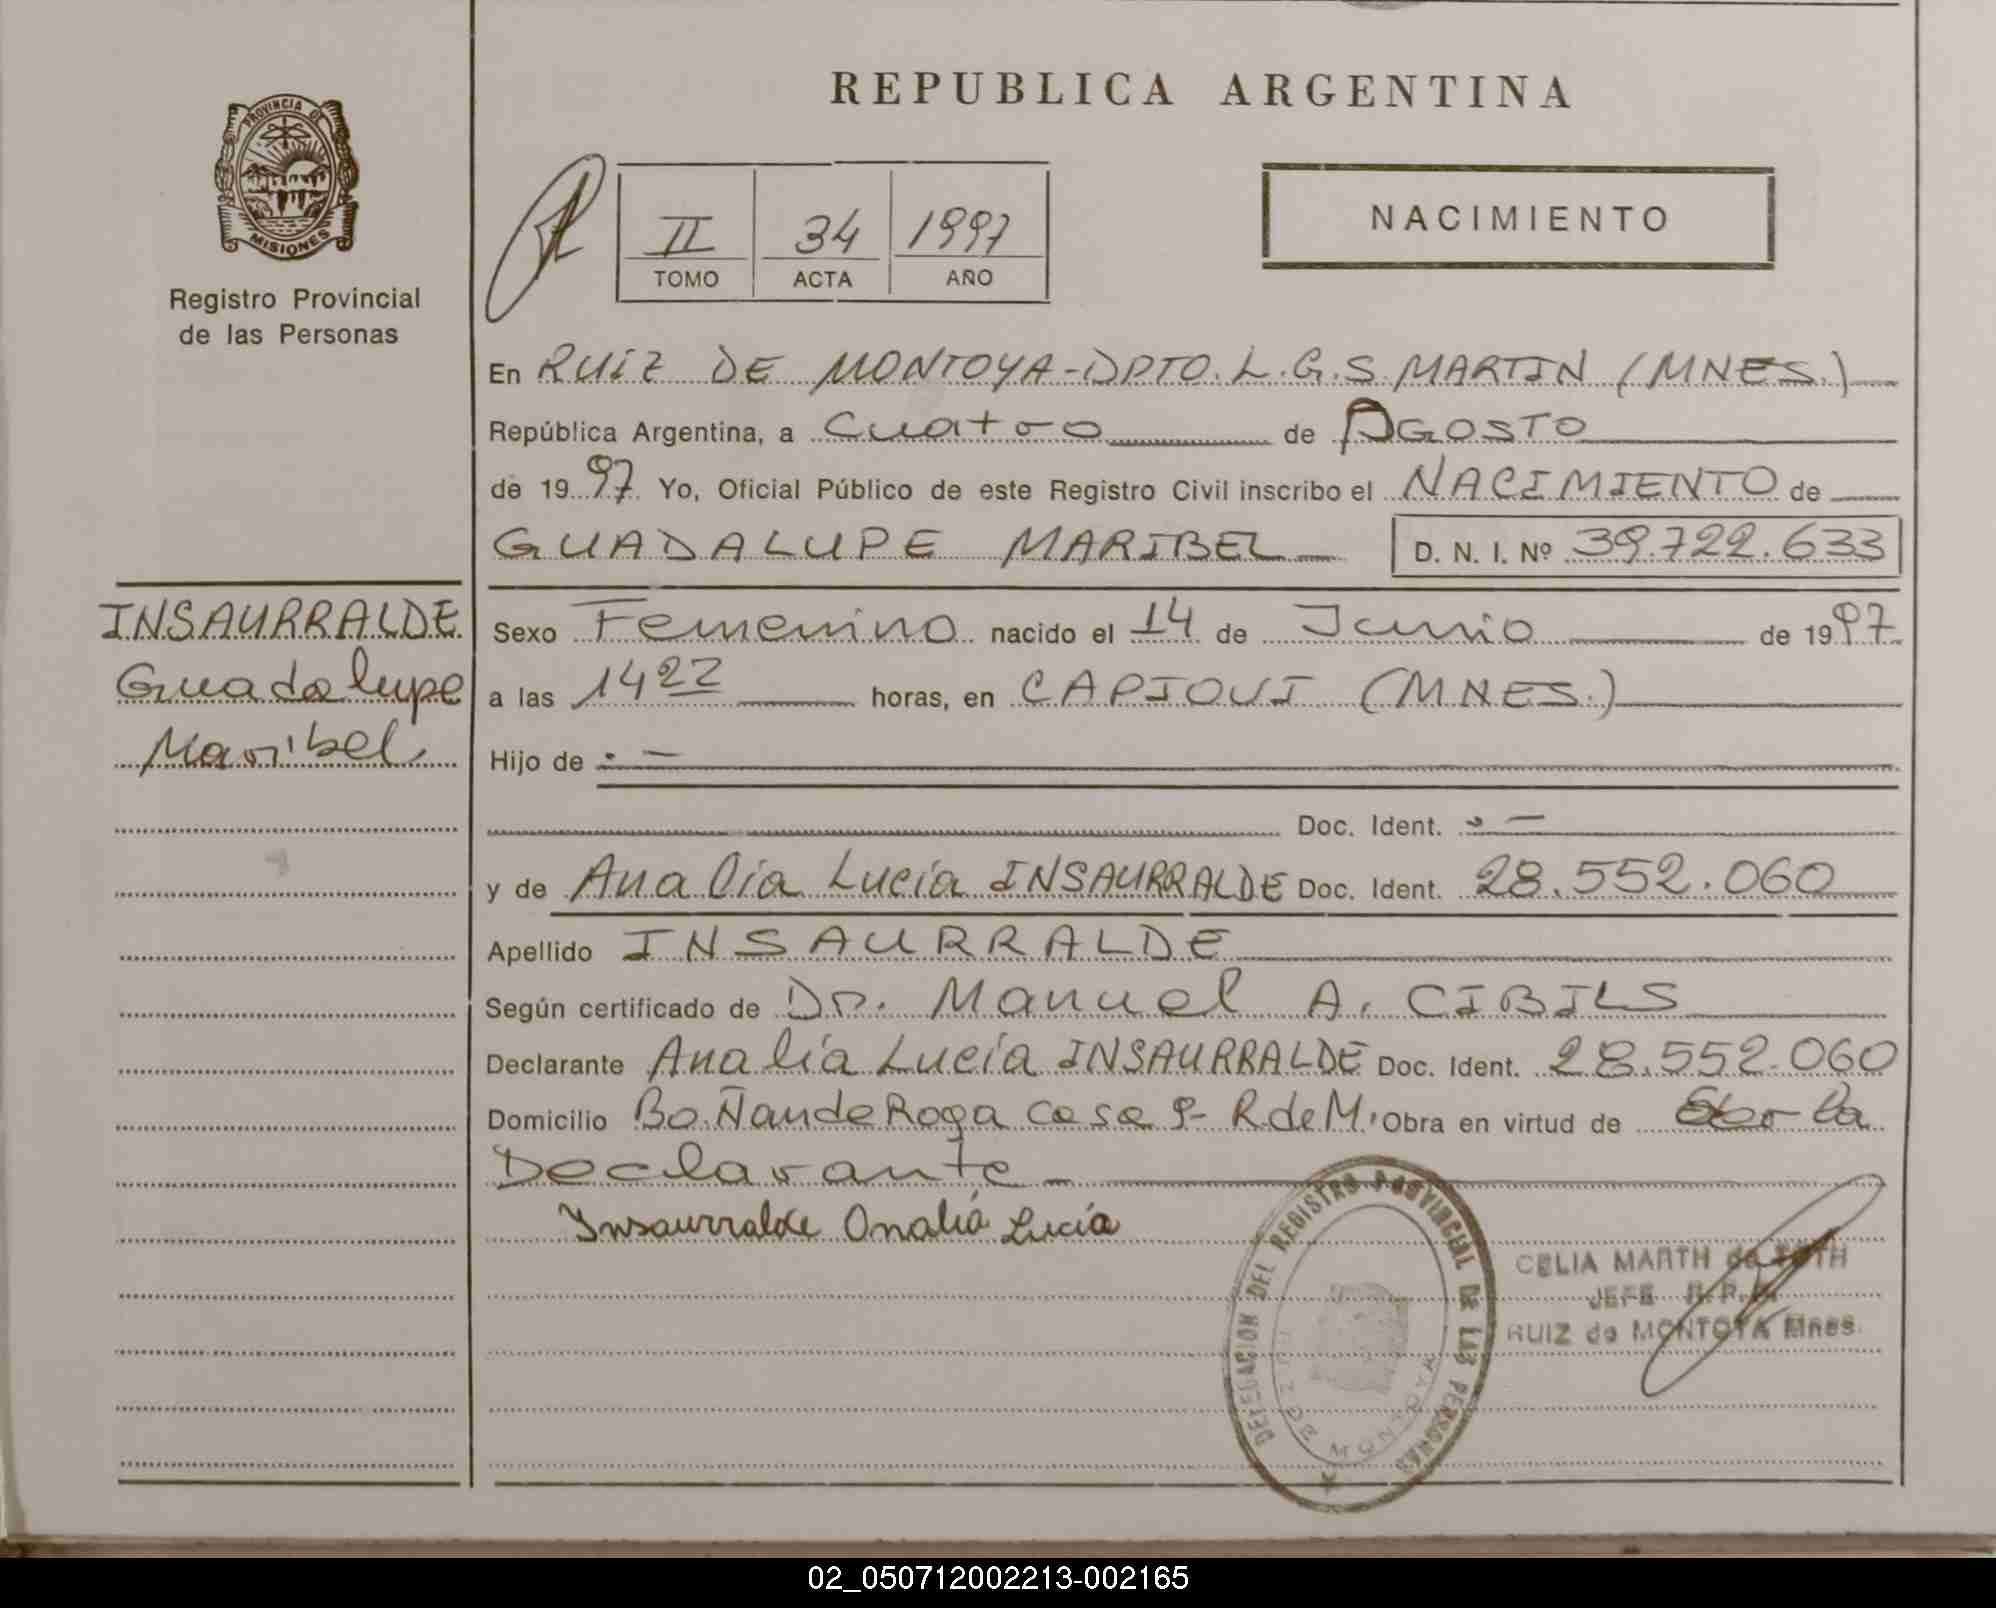 REPUBLICA ARGENTINA
PROVINCIA DE
MISIONES
Registro Provincial
de las Personas
II 34 1997
TOMO ACTA AÑO
NACIMIENTO
En RUIZ DE MONTOYA-DPTO. L.G.S. MARTIN (MNES.)
República Argentina, a cuatro de AGOSTO
de 1997 Yo, Oficial Público de este Registro Civil inscribo el NACIMIENTO de
GUADALUPE MARIBEL D. N. I. Nº 39.722.633
INSAURRALDE
Guadalupe
Maribel
Sexo Femenino nacido el 14 de Junio de 1997
a las 14 22 horas, en CAPIOVI (MNES.)
Hijo de . —
Doc. Ident. . —
y de Analía Lucía INSAURRALDE Doc. Ident. 28.552.060
Apellido INSAURRALDE
Según certificado de Dr. Manuel A. CIBILS
Declarante Analía Lucía INSAURRALDE Doc. Ident. 28.552.060
Domicilio Bo. Ñande Roga casa 9- R. de M. Obra en virtud de ser la
Declarante -
Insaurralde Analia Lucía
DELEGACION DEL REGISTRO PROVINCIAL DE LAS PERSONAS
RUIZ DE MONTOYA
CELIA MARTH de TOTH
JEFE R.P.P.
RUIZ de MONTOYA Mnes.
02_050712002213-002165